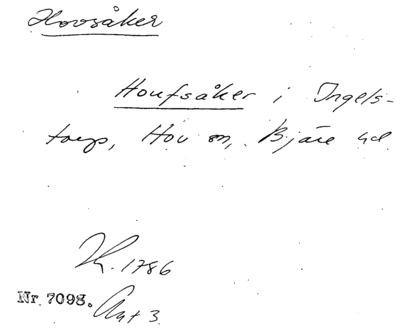 Hovsåker
Houfsåker i Ingels-
torp, Hov sn, Bjäre hd
Nr 7098. Akt 3